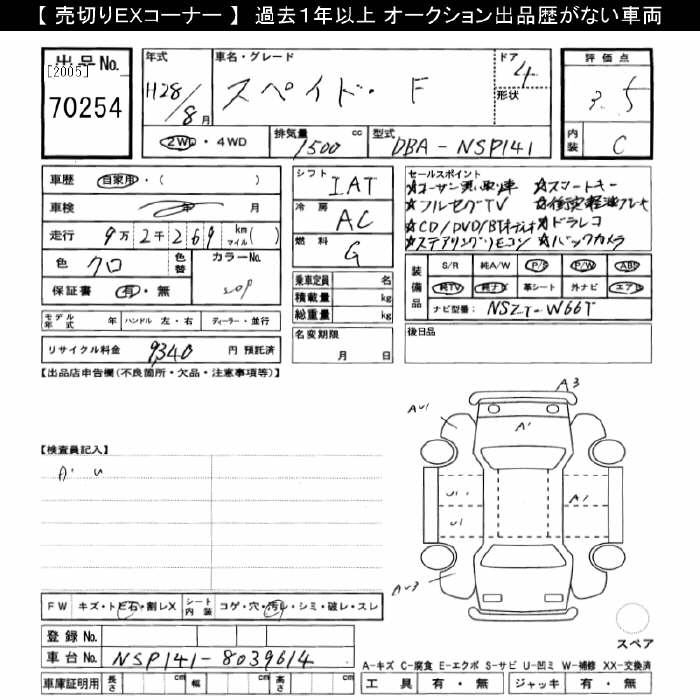 【 売切りEXコーナー 】 過去1年以上 オークション出品歴がない車両
出品No. 年式 車名・グレード ドア 評価点
[2005]
70254 H28/8月 スペイド・ F 4 形状 3.5
2WD・4WD 排気量 1500 cc 型式 DBA-NSP141 内装 C
車歴 自家用・( )
車検 年 月
走行 9万2千269 km マイル( )
色 クロ 色替 カラーNo. 209
保証書 有・無
シフト IAT
冷房 AC
燃料 G
乗車定員 名
積載量 kg
総重量 kg
名変期限 月 日
セールスポイント
☆ユーザー買取車 ☆スマートキー
☆フルセグTV ☆衝突軽減ブレーキ
☆CD/DVD/BTオーディオ ☆ドラレコ
☆ステアリングリモコン ☆バックカメラ
装備品 S/R 純A/W P/S P/W ABS
純TV 純ナビ 革シート 外ナビ エアB
ナビ型番: NSZT-W66T
モデル年式 年 ハンドル 左・右 ディーラー・並行
リサイクル料金 9,340 円 預託済
後日品
【出品店申告欄(不良箇所・欠品・注意事項等)】
A3
AU1
A'
【検査員記入】
A' U
U1
A1
U1
AU3
FW キズ・トビ石・割レX シート内装 コゲ・穴・汚レ・シミ・破レ・スレ
登録No.
車台No. NSP141-8039614
スペア
A-キズ C-腐食 E-エクボ S-サビ U-凹ミ W-補修 XX-交換済
車庫証明用 長さ cm 幅 cm 高さ cm 工具 有・無 ジャッキ 有・無